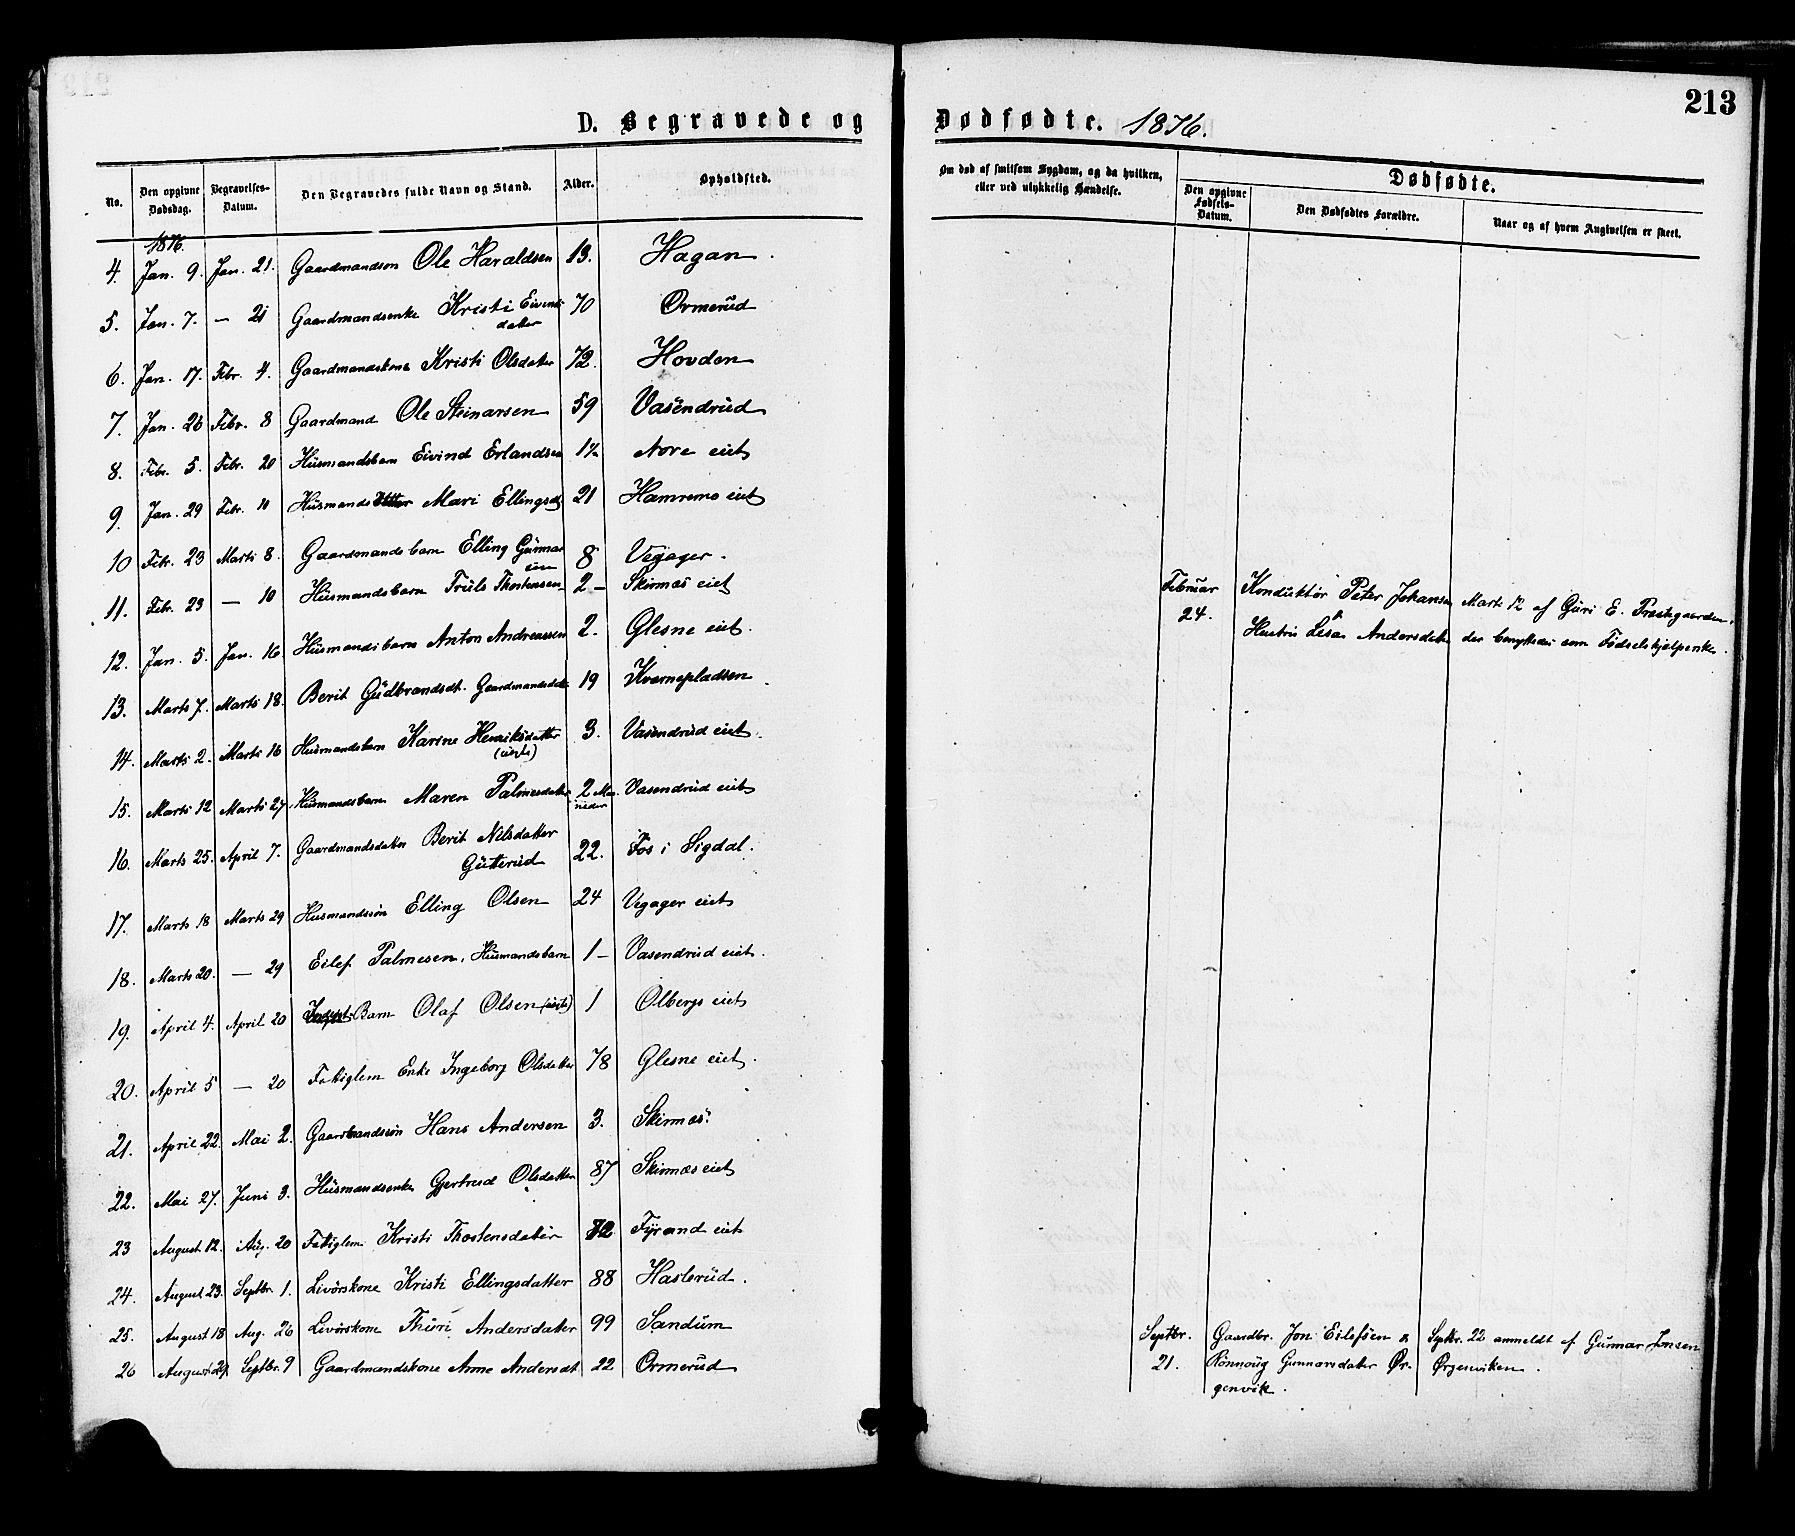 213
D. Begravede og Dødfødte. 1876.
No. | Den opgivne Dødsdag. | Begravelses-Datum. | Den Begravedes fulde Navn og Stand. | Alder. | Opholdssted. | Om død af smitsom Sygdom, og da hvilken, eller ved ulykkelig Hændelse. | Dødfødte.
Den opgivne Fødsels-Datum. | Den Dødfødtes Forældre. | Naar og af hvem Angivelsen er skeet.
1876.
4. Jan. 9. Jan. 21. Gaardmandsøn Ole Haraldsen 13. Hagan.
5. Jan. 7. — 21 Gaardmandsenke Kristi Eivends
datter 70 Ormerud
6. Jan. 17. Febr. 4. Gaardmandskone Kristi Olsdatter 72. Hovden
7. Jan. 26 Febr. 8 Gaardmand Ole Steinarsen 59 Vasendrud
8. Febr. 5. Febr. 20 Husmandsbarn Eivind Erlandsen Nore eiet
9. Jan. 29 Febr. 11 Husmands Mari Ellingsd 21 Hamremo eiet
10 Febr. 23 Marts 8. Gaardmandsbarn Elling Gunnar
sen 8 Vegager.
11. Febr. 23 — 10 Husmandsbarn Truls Thostensen 2 — Skirnæs eiet
Februar Konduktør Peter Johansen Marts 12 af Guri E. Præstegaarden,
24. Hustru Lesa Andersdatter der benyttedes som Fødselshjelperske.
12. Jan. 5. Jan. 16 Husmandsbarn Anton Andreassen 2. Glesne eiet.
13. Marts 7. Marts 18. Berit Gudbrandsdt. Gaardmandsdatter 19 Kvernepladsen
14. Marts 2. Marts 16 Husmandsbarn Karine Henriksdatter
(uægte) 3. Vasendrud eiet.
15. Marts 12 Marts 27 Husmandsbarn Maren Palmesdatter 2 Maa
neder Vasendrud eiet
16. Marts 25. April 7. Gaardmandsdatter Berit Nilsdatter
Gutterud 22. Fos i Sigdal.
17. Marts 18 Marts 29 Husmandssøn Elling Olsen 24 Vegager eiet
18. Marts 20. — 29 Eilef Palmesen, Husmandsbarn 1 — Vasendrud eiet.
19. April 4. April 20 Barn Olaf Olsen (uægte) 1 Olbergs eiet
20. April 5 — 20 Fattiglem Enke Ingeborg Olsdatter 78 Glesne eiet.
21. April 22. Mai 2. Gaardmandssøn Hans Andersen 3. Skirnæs.
22. Mai 27. Juni 3. Husmandsenke Gjertrud Olsdatter 87 Skirnæs eiet
23 August 12. Aug. 20 Fattiglem Kristi Thostensdatter 72 Fyrand eiet
24. August 23. Septbr. 1. Livørskone Kristi Ellingsdatter 88 Haslerud.
25. August 18 Aug. 26 Livørskone Thuri Andersdatter 99 Sandum
26 August 29 Septbr. 9 Gaardmandskone Anne Andersdt. 22 Ormerud
Septbr. Gaardbr. Jon Eilefsen & Septbr. 22 anmeldt af Gunnar Jonsen
21. Rønnoug Gunnarsdatter Ør- Ørgenviken.
genvik.